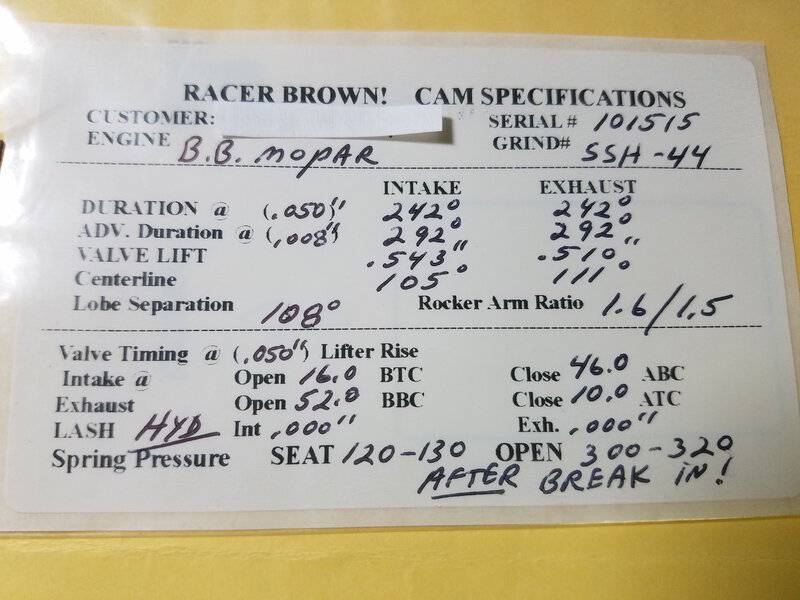 RACER BROWN! CAM SPECIFICATIONS
CUSTOMER: SERIAL# 101515
ENGINE B.B. MOPAR GRIND# SSH-44
INTAKE EXHAUST
DURATION @ (.050)" 242° 242°
ADV. Duration @ (.008") 292° 292°
VALVE LIFT .543" .510"
Centerline 105° 111°
Lobe Separation 108° Rocker Arm Ratio 1.6/1.5
Valve Timing @ (.050") Lifter Rise
Intake @ Open 16.0 BTC Close 46.0 ABC
Exhaust Open 52.0 BBC Close 10.0 ATC
LASH HYD Int .000" Exh. .000"
Spring Pressure SEAT 120-130 OPEN 300-320
AFTER BREAK IN!